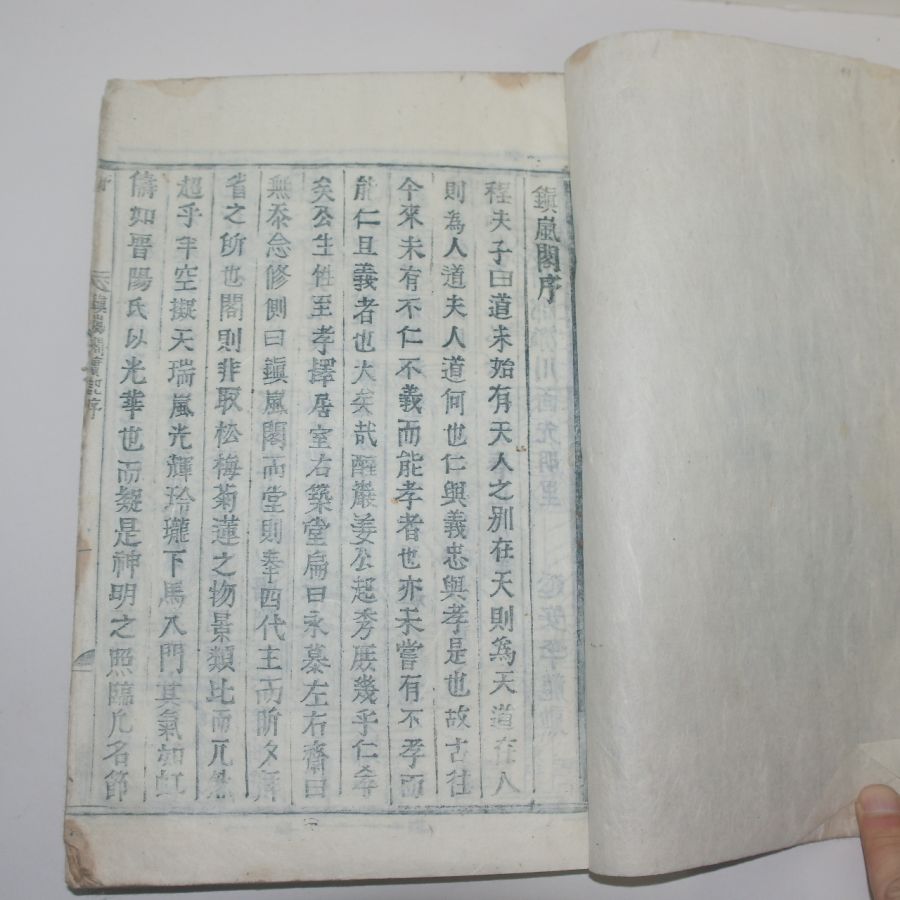 鎭嵐閣序
程夫子曰道未始有天人之別在天則爲天道在人
則為人道夫人道何也仁與義忠與孝是也故古往
今來未有不仁不義而能孝者也亦未嘗有不孝而
能仁且義者也大矣哉醒巖姜公起秀廐幾乎仁孝
矣公生性至孝擇居室右築堂扁曰永慕左右齋曰
無忝念修側曰鎭嵐閣而堂則奉四代主而昕夕
省之所也閣則非取松梅菊蓮之物景類比而兀然
超乎半空擬天瑞嵐光輝玲瓏下馬入門其氣如虹
儔如晋陽氏以光華也而疑是神明之照臨凢名節
序